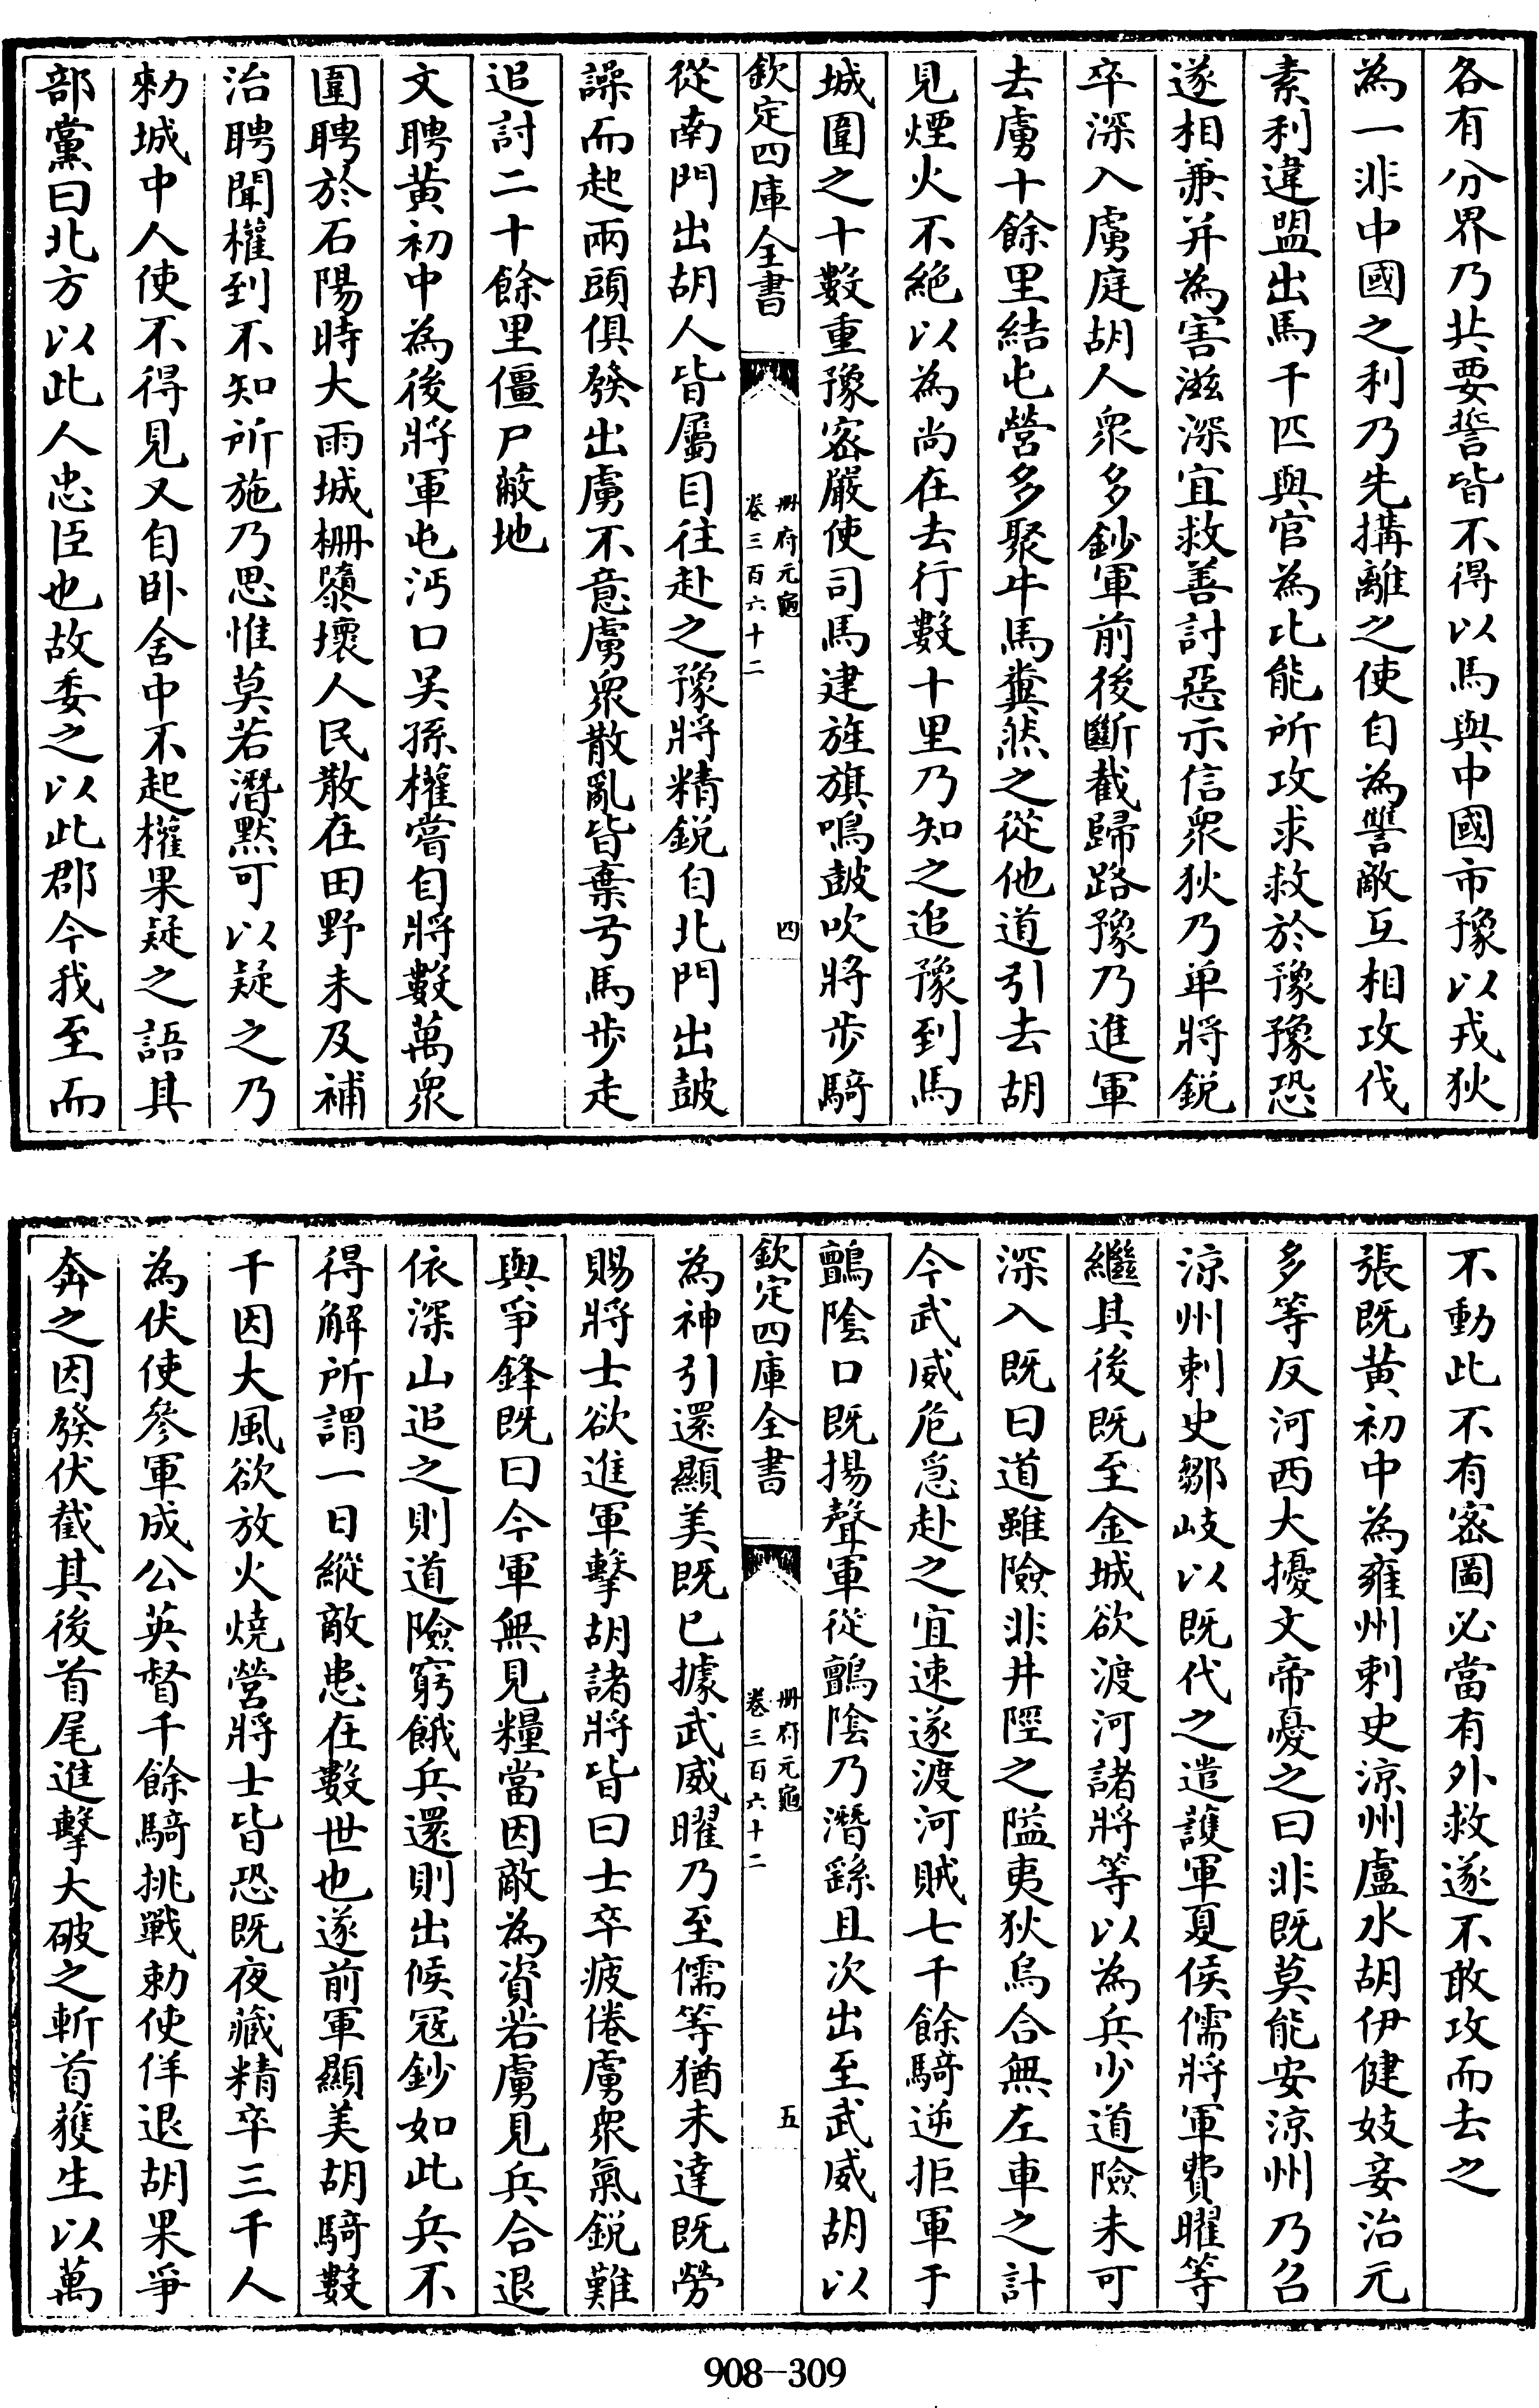 各有分界乃共要誓皆不得以馬與中國市豫以戎狄
為一非中國之利乃先搆離之使自為讐敵互相攻伐
素利違盟出馬千匹與官為比能所攻求救於豫豫恐
遂相兼并為害滋深宜救善討惡示信衆狄乃单將銳
卒深入虜庭胡人衆多鈔軍前後斷截歸路豫乃進軍
去虜十餘里結屯營多聚牛馬糞然之從他道引去胡
見煙火不絶以為尚在去行數十里乃知之追豫到馬
城圍之十數重豫密嚴使司馬建旌旗鳴鼓吹將步騎
欽定四庫全書
冊府元龜
卷三百六十二
四
從南門出胡人皆屬目往赴之豫將精銳自北門出鼓
譟而起兩頭俱發出虜不意虜衆散亂皆棄弓馬步走
追討二十餘里僵尸蔽地
文聘黄初中為後將軍屯沔口吴孫權嘗自將數萬衆
圍聘於石陽時大雨城栅隳壞人民散在田野未及補
治聘聞權到不知所施乃思惟莫若潛黙可以疑之乃
勑城中人使不得見又自卧舍中不起權果疑之語其
部黨曰北方以此人忠臣也故委之以此郡今我至而
不動此不有密圖必當有外救遂不敢攻而去之
張既黄初中為雍州刺史涼州盧水胡伊健妓妾治元
多等反河西大擾文帝憂之曰非既莫能安涼州乃召
涼州刺史鄒岐以既代之遣護軍夏侯儒將軍費曜等
繼其後既至金城欲渡河諸將等以為兵少道險未可
深入既曰道雖險非井陘之隘夷狄烏合無左車之計
今武威危急赴之宜速遂渡河賊七千餘騎逆拒軍于
鸇陰口既揚聲軍從鸇陰乃潛繇且次出至武威胡以
欽定四庫全書
冊府元龜
卷三百六十二
五
為神引還顯美既已據武威曜乃至儒等猶未達既勞
賜將士欲進軍擊胡諸將皆曰士卒疲倦虜衆氣銳難
與爭鋒既曰今軍無見糧當因敵為資若虜見兵合退
依深山追之則道險窮餓兵還則出候寇鈔如此兵不
得解所謂一日縱敵患在數世也遂前軍顯美胡騎數
千因大風欲放火燒營將士皆恐既夜藏精卒三千人
為伏使參軍成公英督千餘騎挑戰勑使佯退胡果爭
奔之因發伏截其後首尾進擊大破之斬首獲生以萬
908-309